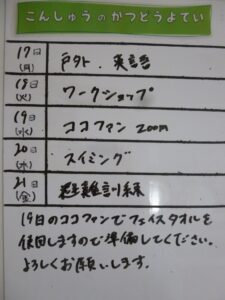 こんしゅうのかつどうよてい
17日
(月) 戸外・英語
18日
(火) ワークショップ
19日
(水) ココファン zoom
20日
(木) スイミング
21日
(金) 避難訓練
19日のココファンでフェイスタオルを
使回しますので準備してください。
よろしくお願いします。